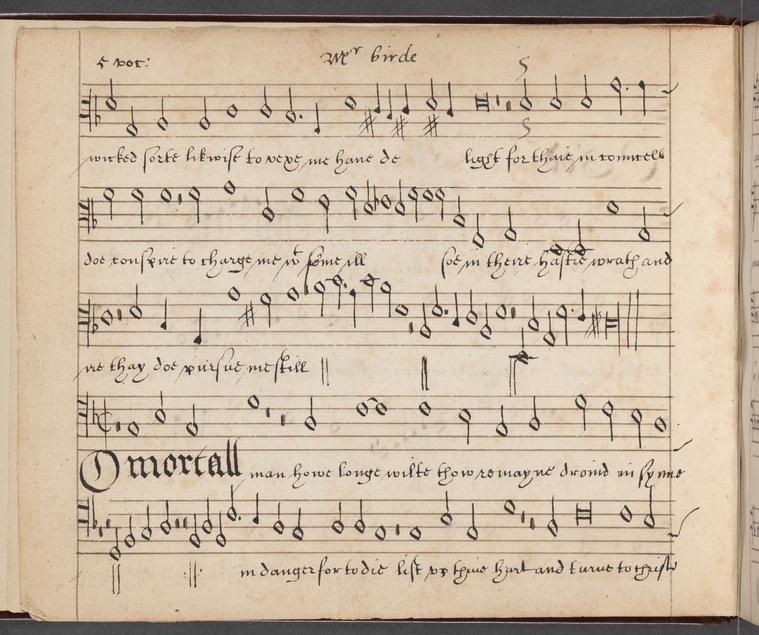 5 voc: Mr birde
wicked sorte likwise to vexe me have de light for thaie in councels
doe conspire to charge me wt some ill soe in there hastie wrath and
ire thay doe pursue me still
O mortall man howe longe wilte thow remayne dround in synne
in danger for to die list up thine hart and turne to christ